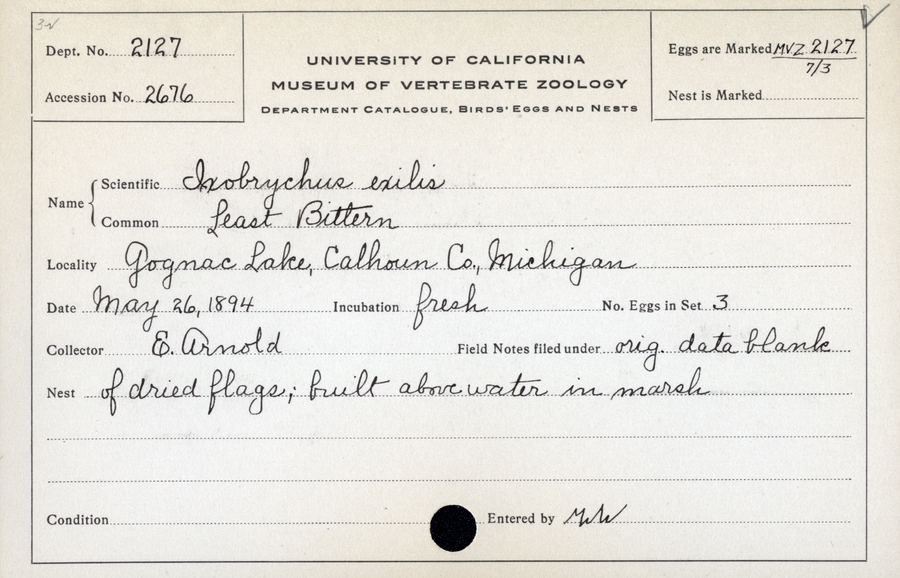 Dept. No. 2127
Accession No. 2676
UNIVERSITY OF CALIFORNIA
MUSEUM OF VERTEBRATE ZOOLOGY
DEPARTMENT CATALOGUE, BIRDS' EGGS AND NESTS
Eggs are Marked MVZ 2127
7/3
Nest is Marked
Name
Scientific Ixobrychus exilis
Common Least Bittern
Locality Gognac Lake, Calhoun Co., Michigan
Date May 26, 1894 Incubation fresh No. Eggs in Set 3
Collector E. Arnold Field Notes filed under orig. data blank
Nest of dried flags; built above water in marsh
Condition Entered by